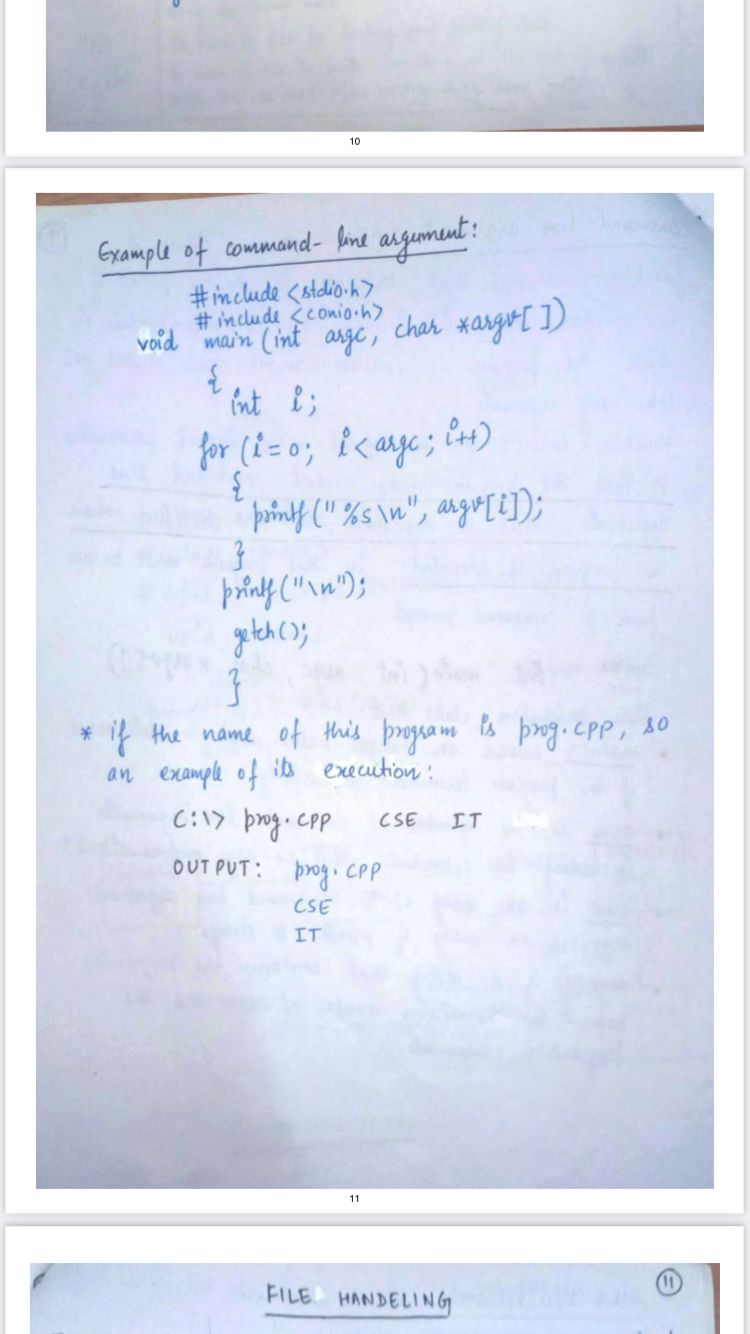 10
Example of command-line argument:
#include <stdio.h>
#include <conio.h>
void main (int argc, char *argv[])
{
int i;
for (i=0; i<argc; i++)
{
printf("%s\n", argv[i]);
}
printf("\n");
getch();
}
* if the name of this program is prog.cpp, so
an example of its execution:
C:\> prog.cpp CSE IT
OUTPUT: prog.cpp
CSE
IT
11
11
FILE HANDELING